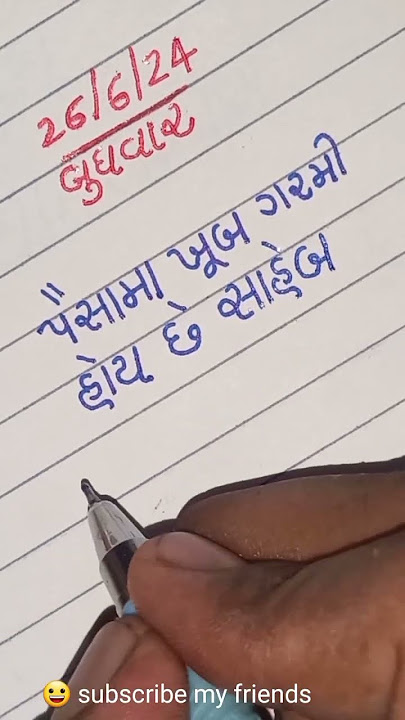 26/6/24
બુધવાર
પૈસામા ખૂબ ગરમી
હોય છે સાહેબ
😀 subscribe my friends